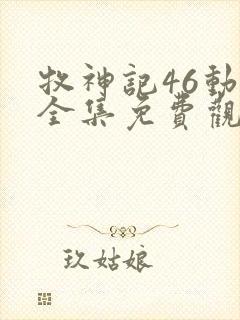 牧神記46動
全集免費觀
玖姑娘